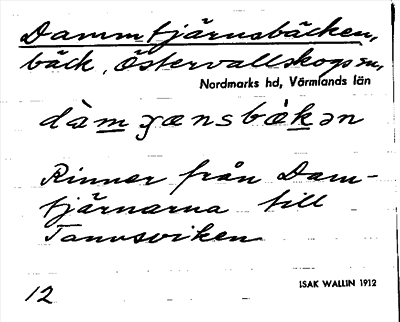 Dammtjärnsbäcken,
bäck, Östervallskogs sn,
Nordmarks hd, Värmlands län
dàmɟænsbèkən
Rinner från Dam-
tjärnarna till
Tannsviken
ISAK WALLIN 1912
12